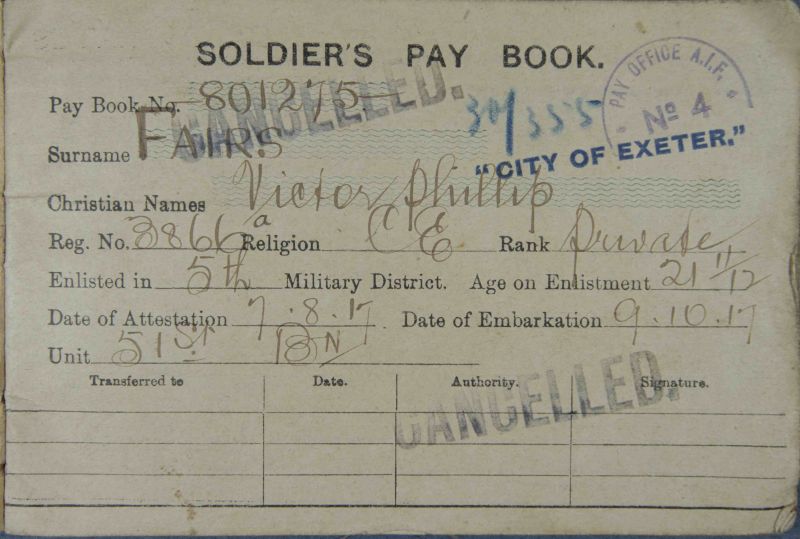 SOLDIER'S PAY BOOK.
Pay Book No. 801275
CANCELLED.
30/355
PAY OFFICE A.I.F.
No 4
Surname FAIRS
"CITY OF EXETER."
Christian Names Victor Phillip
Reg. No. 3866a Religion CE Rank private
Enlisted in 5th Military District. Age on Enlistment 21 11/12
Date of Attestation 7.8.17 Date of Embarkation 9.10.17
Unit 51st BN
Transferred to Date. Authority. Signature.
CANCELLED.